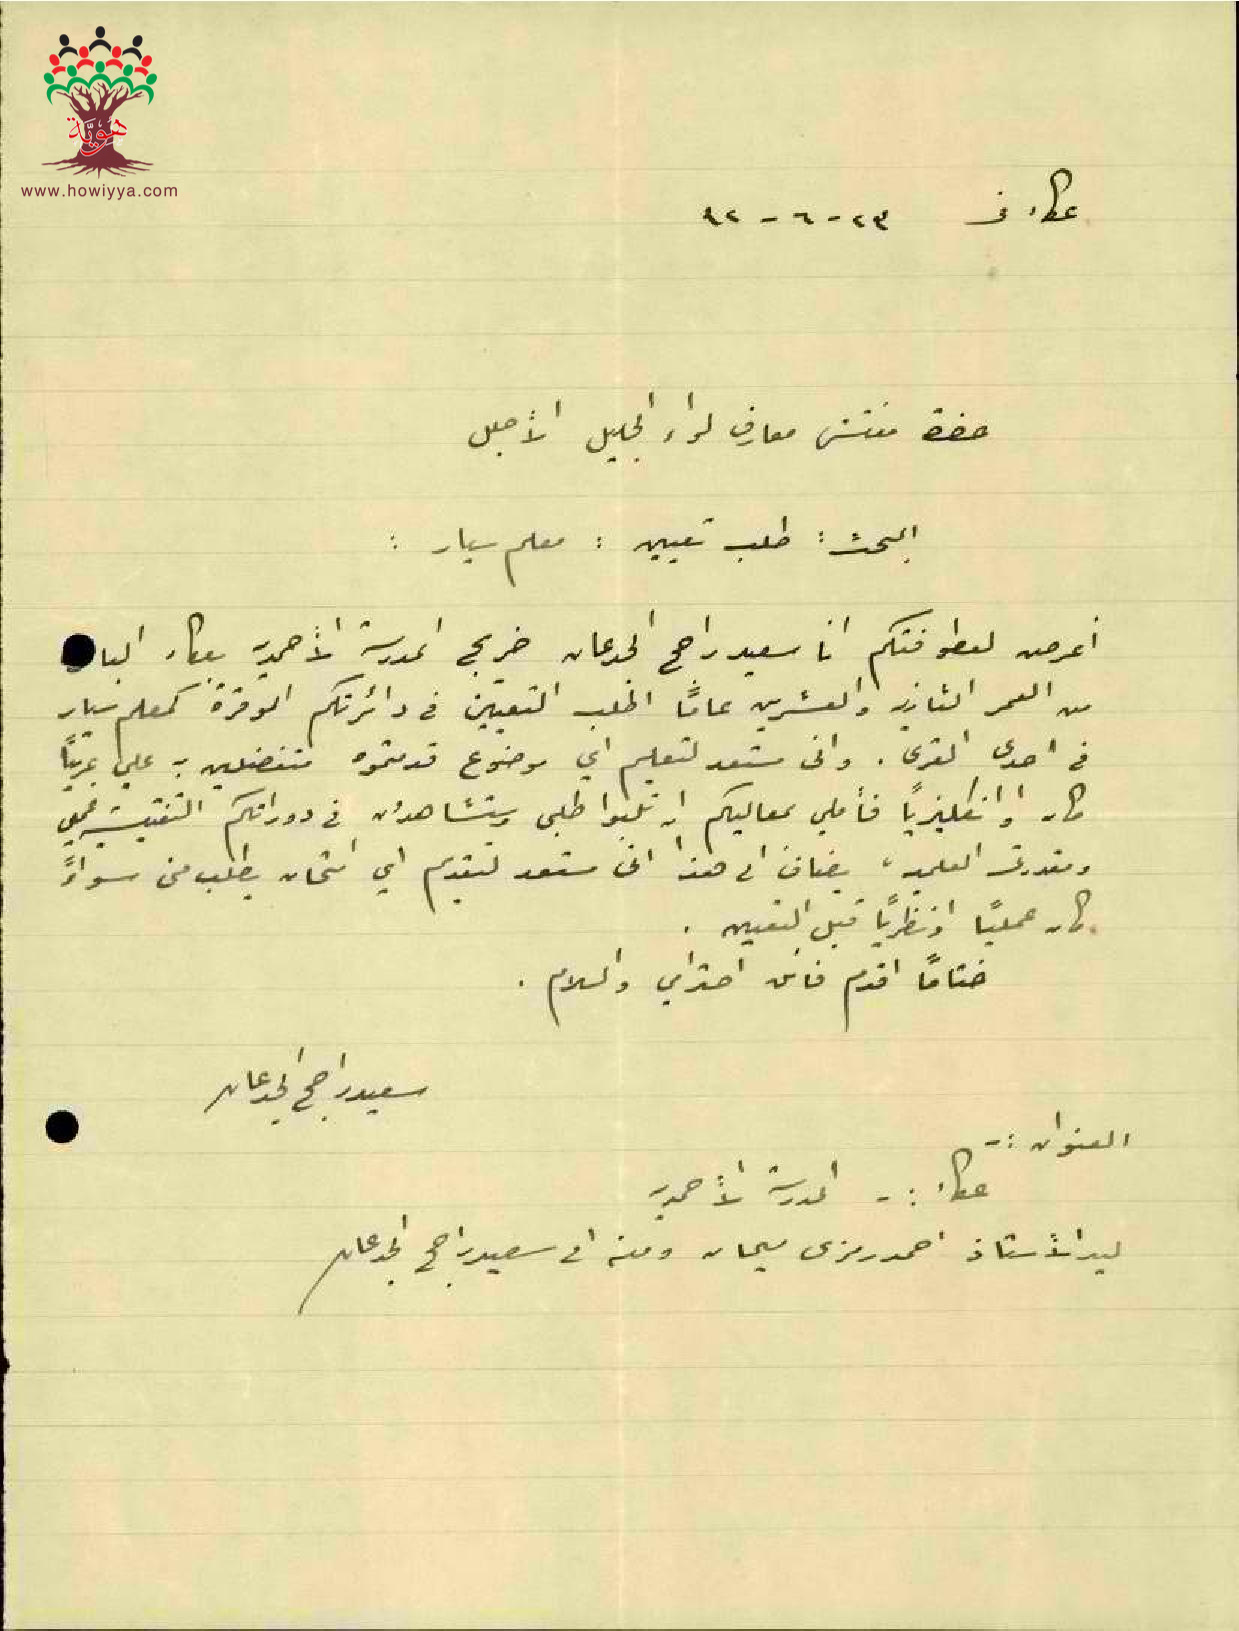 هويّة
www.howiyya.com
عكاء في ٢٣ - ٦ - ٩٢
حضرة مفتش معارف لواء الجليل الأجل
البحث : طلب تعيين : معلم سيار :
أعرض لعطوفتكم انا سعيد راجح الجدعان خريج المدرسة الأحمدية بعكاء البالغ
من العمر الثانية والعشرين عامًا اطلب التعيين في دائرتكم الموقرة كمعلم سيار
في احدى القرى . واني مستعد لتعليم اي موضوع قدمتموه متفضلين به علي عربيًا
كان او انكليزيًا فأملي بمعاليكم ان تلبوا طلبي وستشاهدون في دوراتكم التفتيشية
ومقدرتي العلمية ، يضاف الى هذا اني مستعد لتقديم اي امتحان يطلب مني سواءً
كان عمليًا او نظريًا قبل التعيين .
ختامًا اقدم فائق احترامي والسلام .
سعيد راجح الجدعان
العنوان :-
عكاء :- المدرسة الأحمدية
ليد الأستاذ احمد رمزي ومنه الى سعيد راجح الجدعان